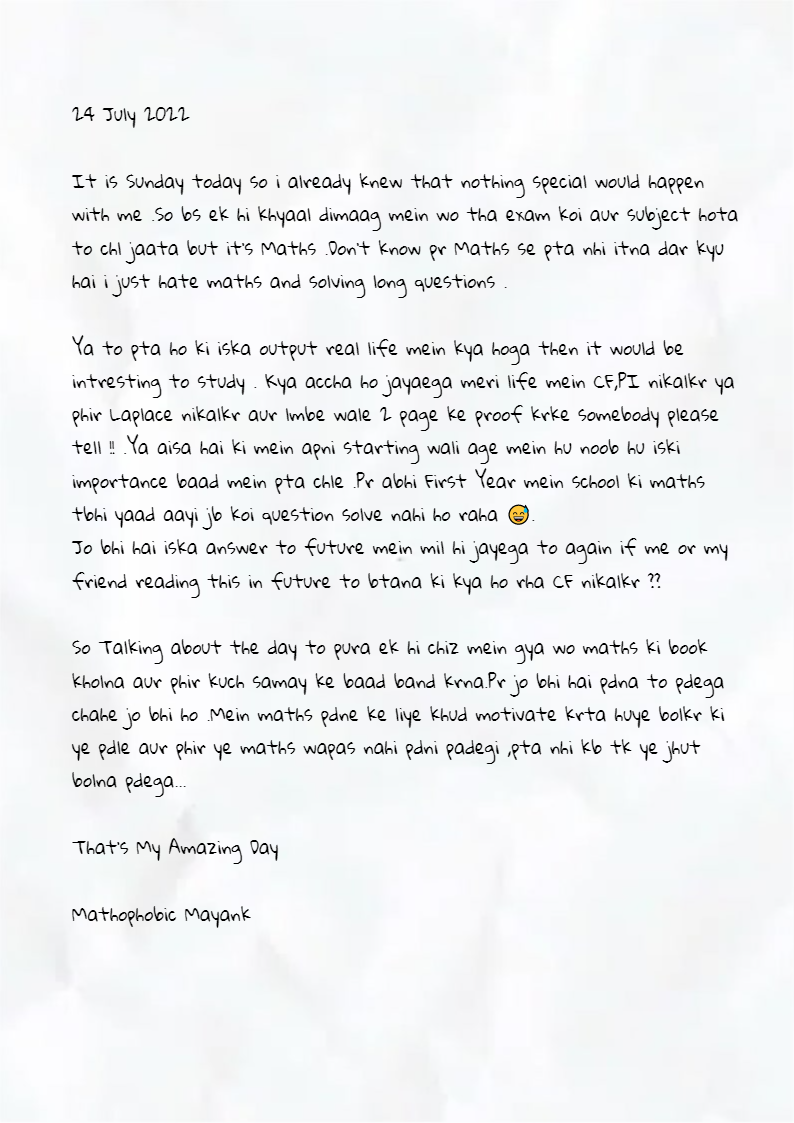 24 July 2022
It is Sunday today so i already knew that nothing special would happen
with me .So bs ek hi khyaal dimaag mein wo tha exam koi aur subject hota
to chl jaata but it's Maths .Don't know pr Maths se pta nhi itna dar kyu
hai i just hate maths and solving long questions .
Ya to pta ho ki iska output real life mein kya hoga then it would be
intresting to study . Kya accha ho jayaega meri life mein CF,PI nikalkr ya
phir Laplace nikalkr aur lmbe wale 2 page ke proof krke somebody please
tell !! .Ya aisa hai ki mein apni starting wali age mein hu noob hu iski
importance baad mein pta chle .Pr abhi First Year mein school ki maths
tbhi yaad aayi jb koi question solve nahi ho raha 😅.
Jo bhi hai iska answer to future mein mil hi jayega to again if me or my
friend reading this in future to btana ki kya ho rha CF nikalkr ??
So Talking about the day to pura ek hi chiz mein gya wo maths ki book
kholna aur phir kuch samay ke baad band krna.Pr jo bhi hai pdna to pdega
chahe jo bhi ho .Mein maths pdne ke liye khud motivate krta huye bolkr ki
ye pdle aur phir ye maths wapas nahi pdni padegi ,pta nhi kb tk ye jhut
bolna pdega...
That's My Amazing Day
Mathophobic Mayank